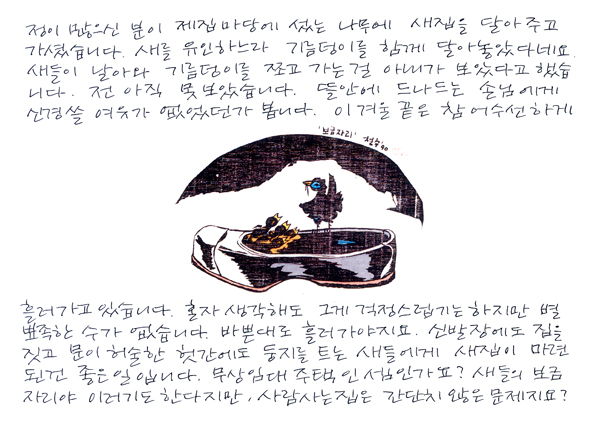 정이 많으신 분이 제집 마당에 섰는 나무에 새집을 달아 주고
가셨습니다. 새를 유인하느라 기름덩이를 함께 달아놓았다네요.
새들이 날아와 기름덩이를 쪼고 가는걸 아내가 보았다고 했습
니다. 전 아직 못보았습니다. 뜰안에 드나드는 손님에게
신경쓸 여유가 없었던가 봅니다. 이 겨울 끝은 참 어수선하게
'보금자리' 철수 '90
흘러가고 있습니다. 혼자 생각해도 그게 걱정스럽기는 하지만 별
뾰족한 수가 없습니다. 바쁜대로 흘러가야지요. 신발장에도 집을
짓고 문이 허술한 헛간에도 둥지를 트는 새들에게 새집이 마련
된건 좋은 일입니다. 무상임대 주택인 셈인가요? 새들의 보금
자리야 이러기도 한다지만, 사람사는집은 간단치 않은 문제지요?